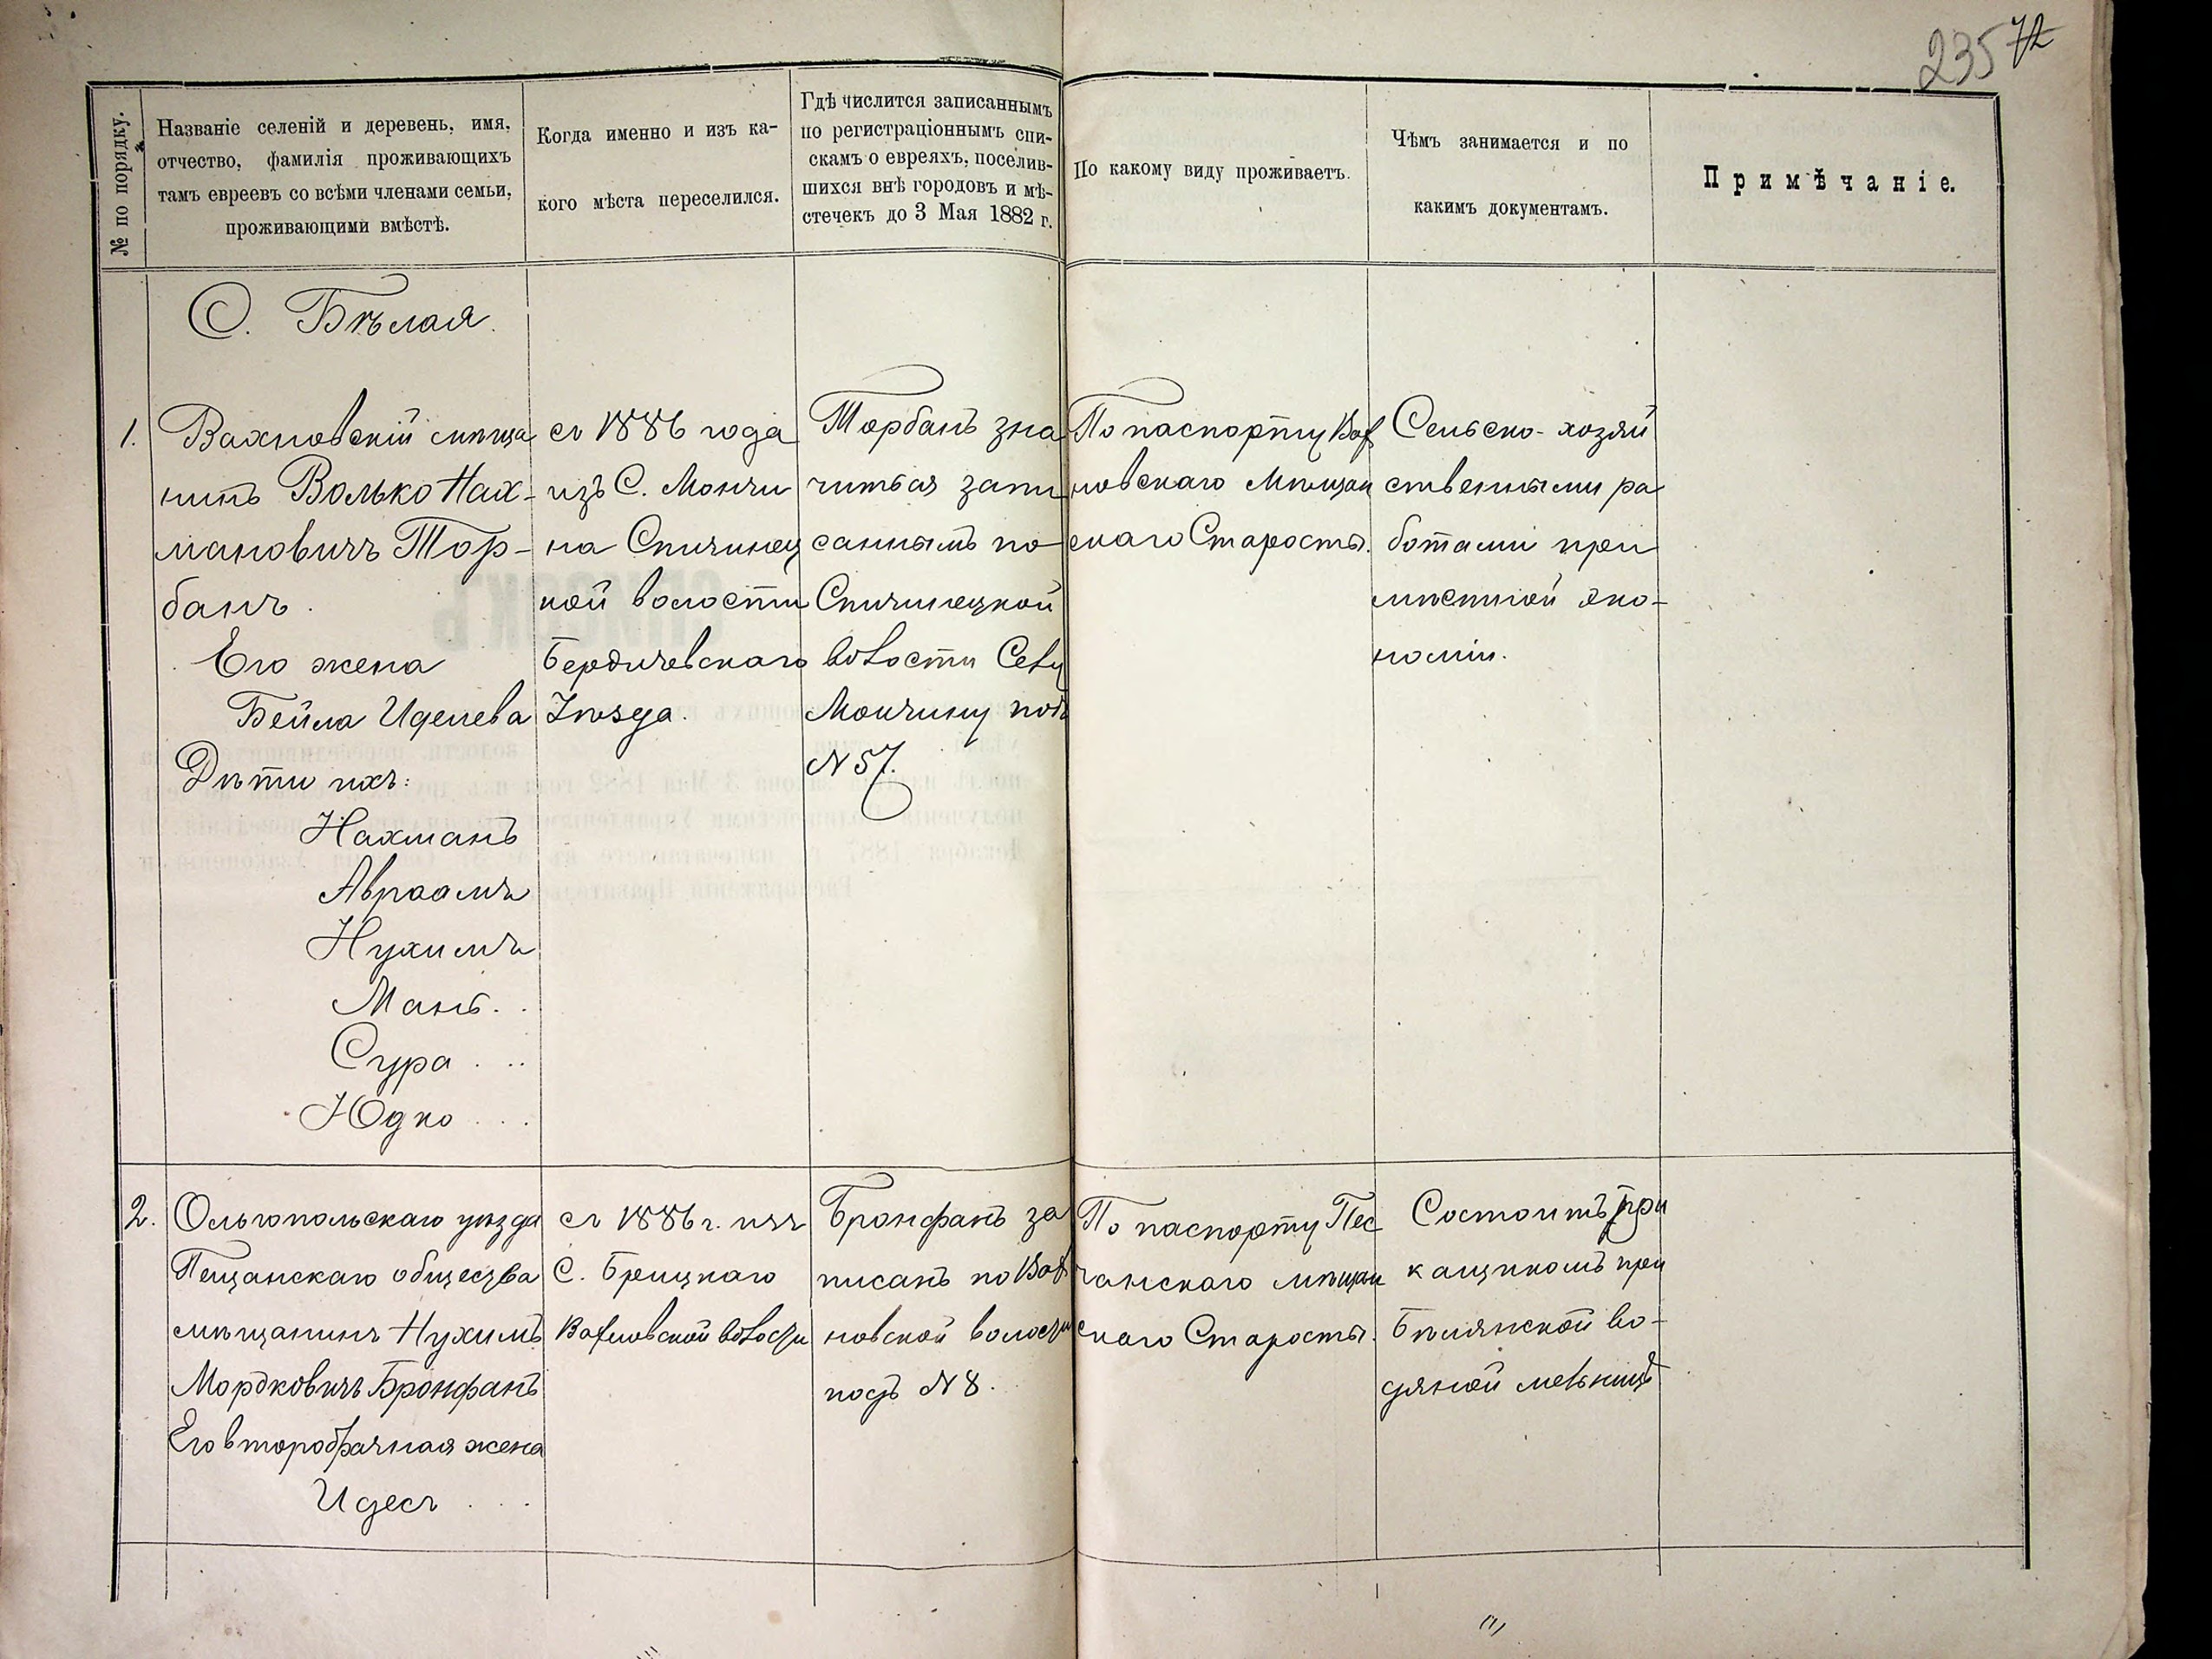 235 72
№ по порядку.
Названіе селеній и деревень, имя,
отчество, фамилія проживающихъ
тамъ евреевъ со всѣми членами семьи,
проживающими вмѣстѣ.
Когда именно и изъ ка-
кого мѣста переселился.
Гдѣ числится записаннымъ
по регистраціоннымъ спи-
скамъ о евреяхъ, поселив-
шихся внѣ городовъ и мѣ-
стечекъ до 3 Мая 1882 г.
По какому виду проживаетъ.
Чѣмъ занимается и по
какимъ документамъ.
Примѣчаніе.
С. Бѣлая.
1.
Вахновскій мѣща
нинъ Волько Нах-
мановичъ Тор-
банъ.
Его жена
Бейла Иделева
Дѣти ихъ:
Нахманъ
Авраамъ
Нухимъ
Мань..
Сура...
Юдко...
съ 1886 года
изъ С. Мончи
на Спичинец
кой волости
Бердичевскаго
Уѣзда.
Торбанъ зна
читься запи
саннымъ по
Спичинецкой
волости Селу
Мончину подъ
№ 57.
По паспорту Вах
новскаго Мѣщан
скаго Старосты.
Сельско-хозяй
ственными ра
ботами при
мѣстной эко-
номіи.
2.
Ольгопольскаго уѣзда
Пещанскаго общества
мѣщанинъ Нухимъ
Мордковичъ Бронфанъ
Его второбрачная жена
Идесъ...
съ 1886 г. изъ
С. Брицкаго
Вахновской волости
Бронфанъ за
писанъ по Вах
новской волости
подъ № 8.
По паспорту Пес
чанскаго мѣщан
скаго Старосты.
Состоитъ при
кащикомъ при
Бѣлянской во-
дяной мельницѣ